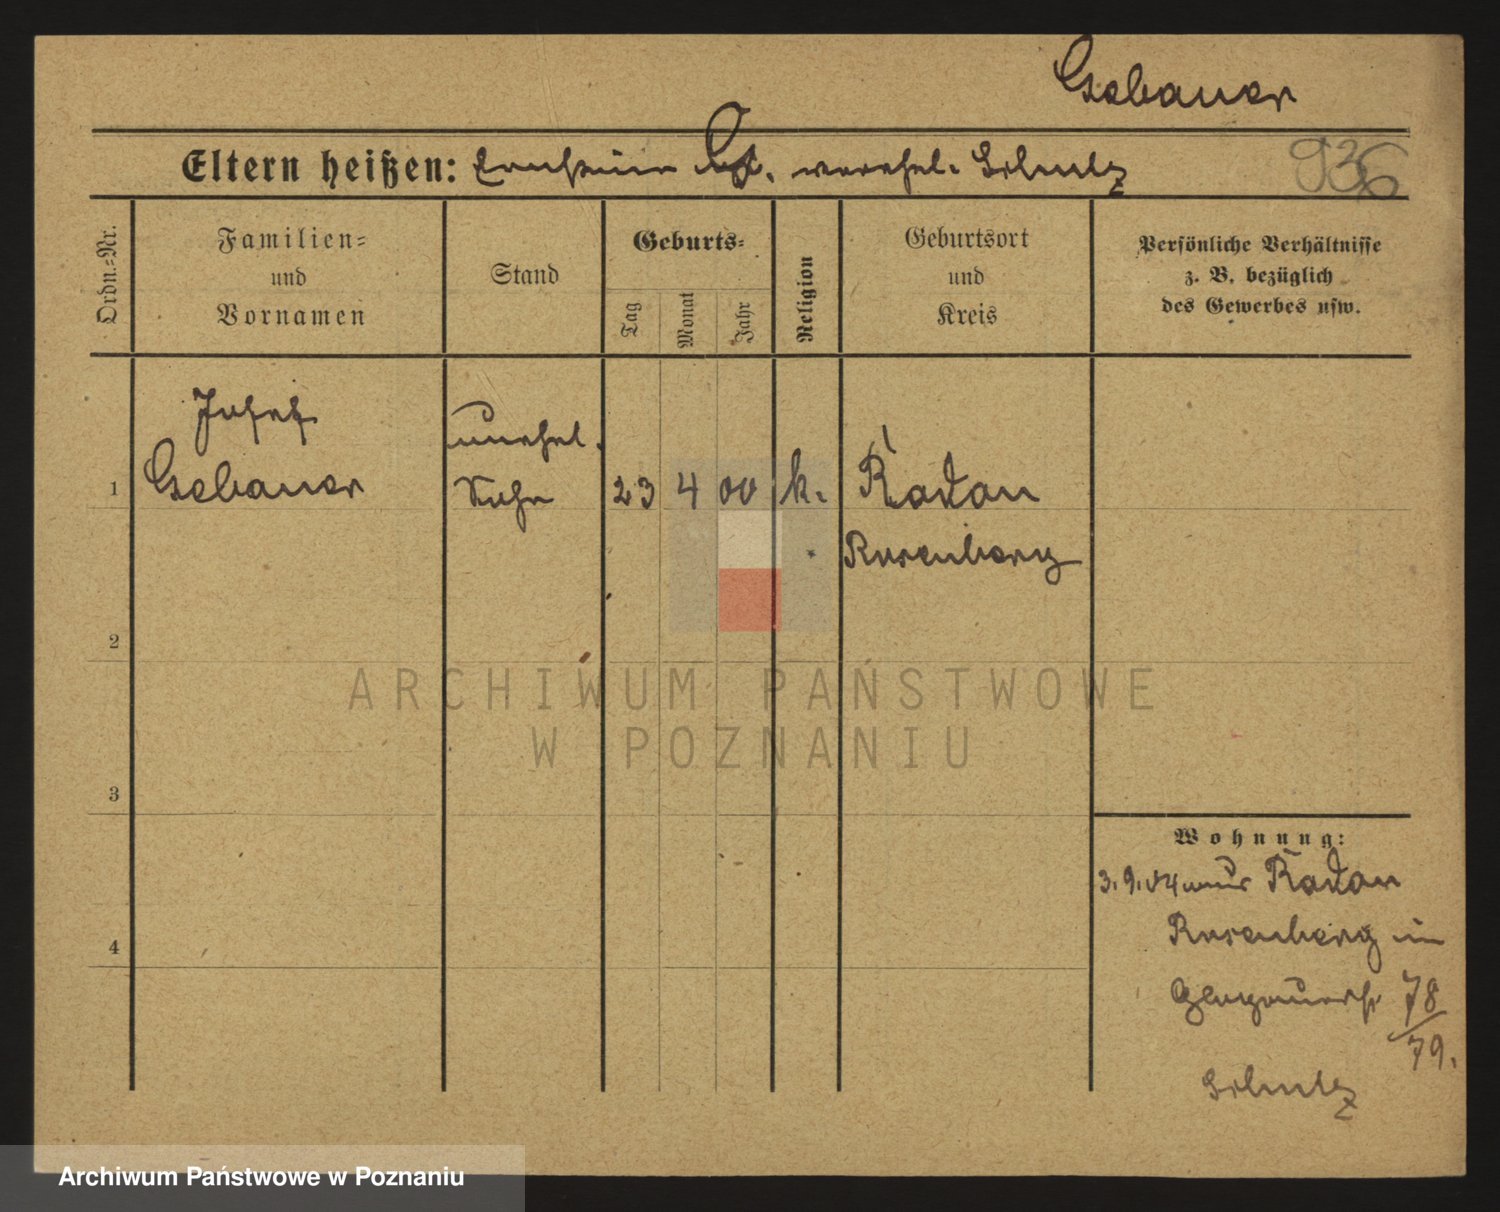 Gebauer
Eltern heißen: G. verehel. Schulz
936
Ordn.=Nr.
Familien=
und
Vornamen
Stand
Geburts=
Tag
Monat
Jahr
Religion
Geburtsort
und
Kreis
Persönliche Verhältnisse
z. B. bezüglich
des Gewerbes usw.
Josef
unehel.
1 Gebauer Sohn 23 4 00 k. Radau
Rosenberg
2
ARCHIWUM PAŃSTWOWE
W POZNANIU
3
Wohnung:
3.9.04 Radau
Rosenberg in
4
78
79.
Schulz
Archiwum Państwowe w Poznaniu